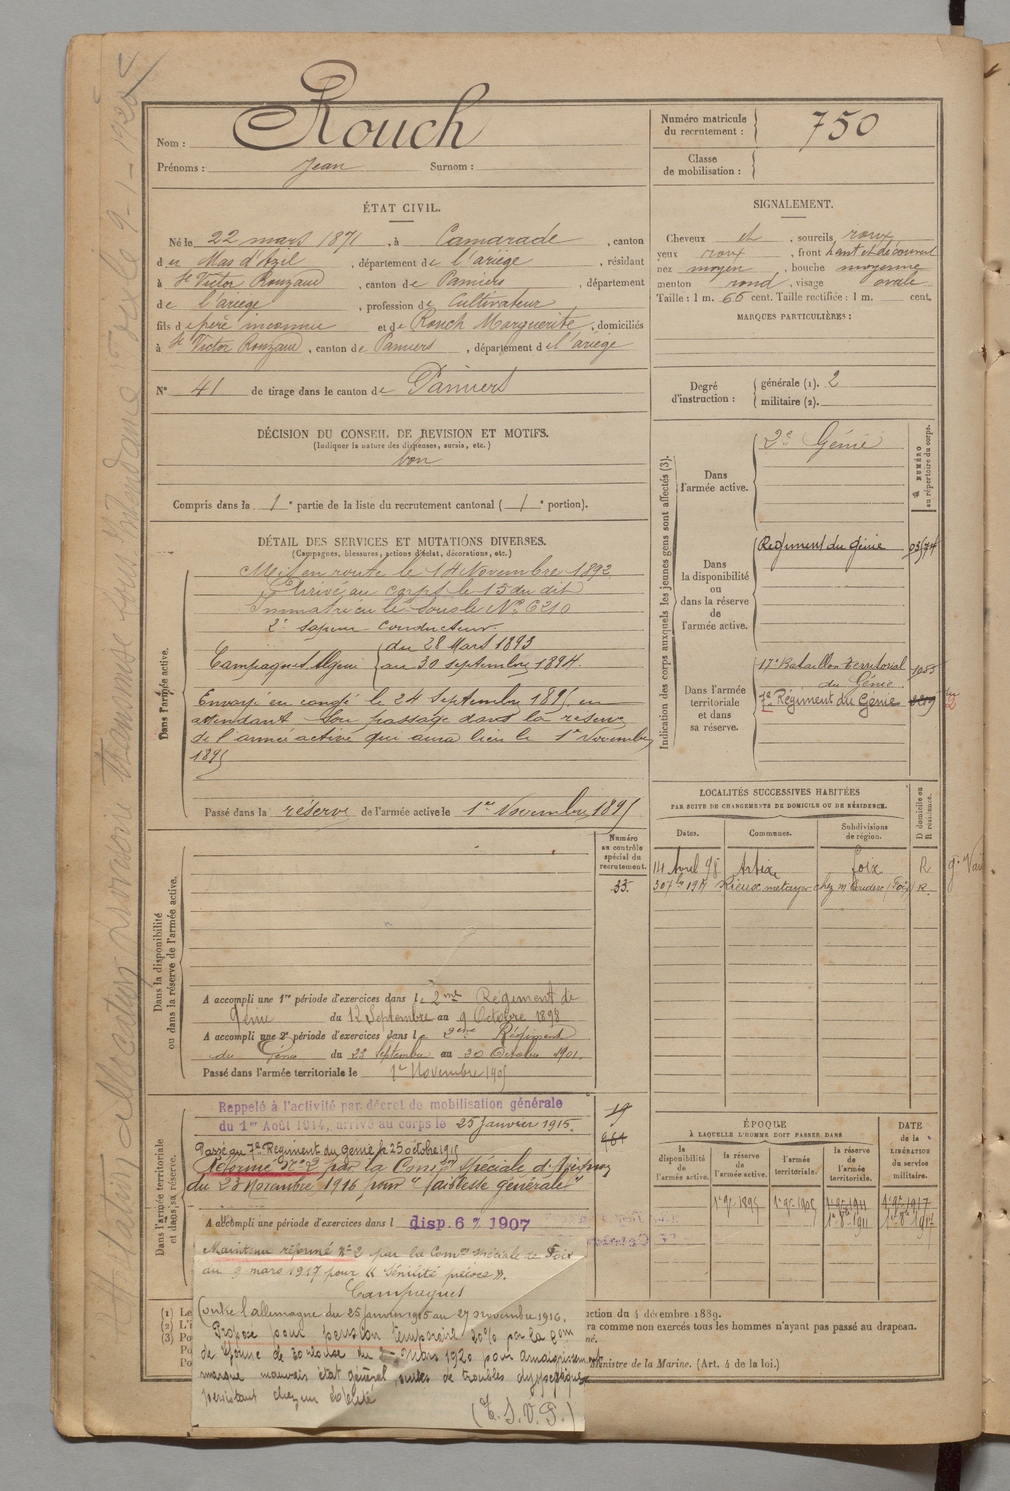 Nom : Rouch
Prénoms : Jean Surnom :
Numéro matricule du recrutement : 750
Classe de mobilisation :
ÉTAT CIVIL.
Né le 22 mars 1871, à Camarade, canton
du Mas d'Azil, département de l'ariège, résidant
à St Victor Rouzaud, canton de Pamiers, département
de l'ariège, profession de Cultivateur
fils de père inconnu et de Rouch Marguerite, domiciliés
à St Victor Rouzaud, canton de Pamiers, département de l'ariège
N° 41 de tirage dans le canton de Pamiers
SIGNALEMENT.
Cheveux et, sourcils roux
yeux roux, front haut et découvert
nez moyen, bouche moyenne
menton rond, visage ovale
Taille : 1 m. 66 cent. Taille rectifiée : 1 m. cent.
MARQUES PARTICULIÈRES :
Degré d'instruction : générale (1). 2
militaire (2).
DÉCISION DU CONSEIL DE REVISION ET MOTIFS.
(Indiquer la nature des dispenses, sursis, etc.)
bon
Compris dans la 1e partie de la liste du recrutement cantonal (1e portion).
DÉTAIL DES SERVICES ET MUTATIONS DIVERSES.
(Campagnes, blessures, actions d'éclat, décorations, etc.)
Dans l'armée active.
Mis en route le 14 Novembre 1892
Arrivé au corps le 15 du dit
Immatriculé sous le N° 6210
2e sapeur conducteur.
Campagnes Algérie du 28 Mars 1893
au 30 septembre 1894.
Envoyé en congé le 24 Septembre 1895 en
attendant son passage dans la réserve
de l'armée active qui aura lieu le 1er Novembre
1895
Passé dans la réserve de l'armée active le 1er Novembre 1895
Indication des corps auxquels les jeunes gens sont affectés (3).
NUMÉRO au répertoire du corps.
Dans l'armée active.
2e Génie
Dans la disponibilité ou dans la réserve de l'armée active.
Régiment du génie
Dans l'armée territoriale et dans sa réserve.
17e Bataillon territorial
du Génie
1085
7e Régiment du Génie
LOCALITÉS SUCCESSIVES HABITÉES
PAR SUITE DE CHANGEMENTS DE DOMICILE OU DE RÉSIDENCE.
Dates. Communes. Subdivisions de région. D domicile ou R résidence.
14 Avril 98 Artix Foix R
R
Numéro au contrôle spécial du recrutement.
33.
Dans la disponibilité
ou dans la réserve de l'armée active.
A accompli une 1re période d'exercices dans le 2me Régiment de
Génie du 12 Septembre au 9 Octobre 1898
A accompli une 2e période d'exercices dans le 2eme Régiment
du Génie du 23 Septembre au 20 Octobre 1901.
Passé dans l'armée territoriale le 1er Novembre 1905
Dans l'armée territoriale
et dans sa réserve.
Rappelé à l'activité par décret de mobilisation générale
du 1er Août 1914, arrivé au corps le 25 Janvier 1915.
Passé au 7e Régiment du génie le 25 octobre 1915
Réformé N° 2 par la Comson Spéciale d'Avignon
du 23 Novembre 1916 pour "faiblesse générale"
A accompli une période d'exercices dans l disp. 6 7 1907
ÉPOQUE
À LAQUELLE L'HOMME DOIT PASSER DANS
la disponibilité de l'armée active.
la réserve de l'armée active.
l'armée territoriale.
la réserve de l'armée territoriale.
DATE de la LIBÉRATION du service militaire.
1er 9bre 1895 1er 9bre 1905 1er 9bre 1911 1er 9bre 1917
Maintenu réformé N° 2 par la Comon spéciale de Foix
du 9 mars 1917 pour « Sénilité précoce ».
Campagnes
Contre l'allemagne du 25 janvier 1915 au 27 novembre 1916.
Proposé pour pension temporaire 20% par la Com
de réforme de Toulouse du 2 Mars 1920 pour amaigrissement
marqué mauvais état général, suites de troubles dyspeptiques
persistant
(T. S. V. P.)
(1) Le
(2) L'i
(3) Po
Po
Po
ction du 4 décembre 1889.
ra comme non exercés tous les hommes n'ayant pas passé au drapeau.
né.
Ministre de la Marine. (Art. 4 de la loi.)